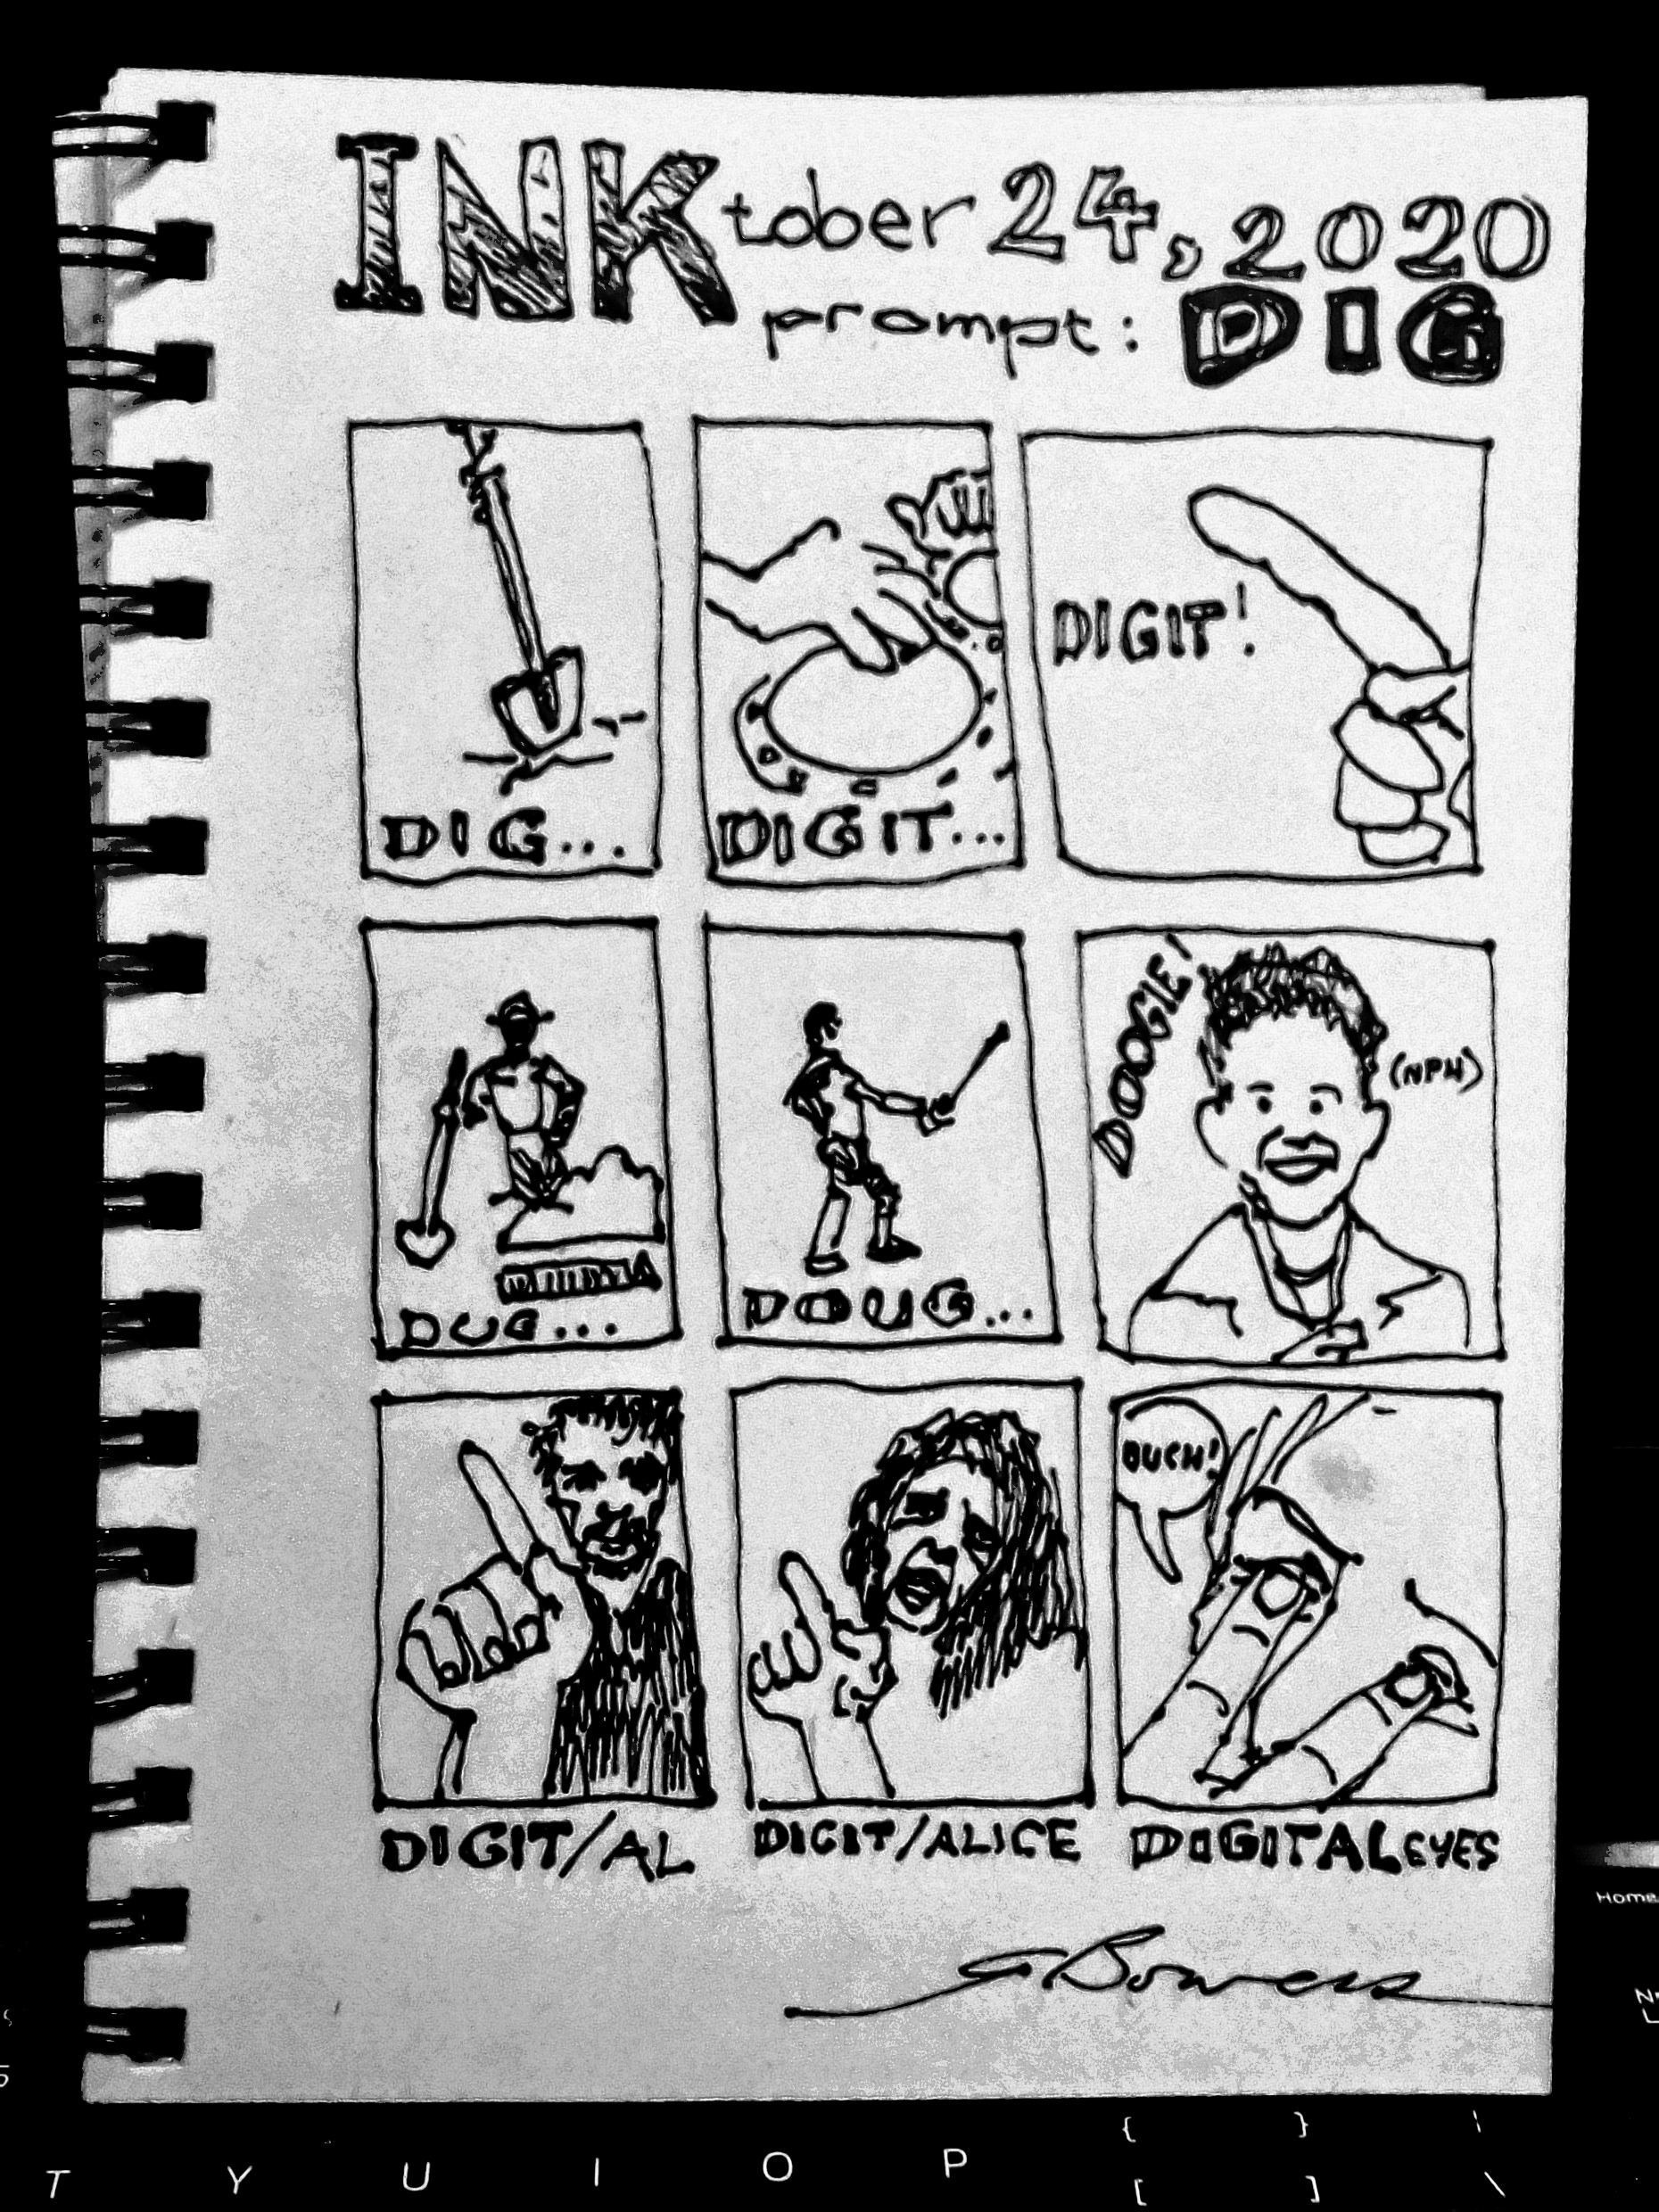 INKtober 24, 2020
prompt: DIG
DIG...
DIGIT...
DIGIT!
DUG...
DOUG...
DOOGIE!
(NPH)
OUCH!
DIGIT/AL
DIGIT/ALICE
DIGITAL EYES
GBowers
Home
T Y U I O P { [ } ] \